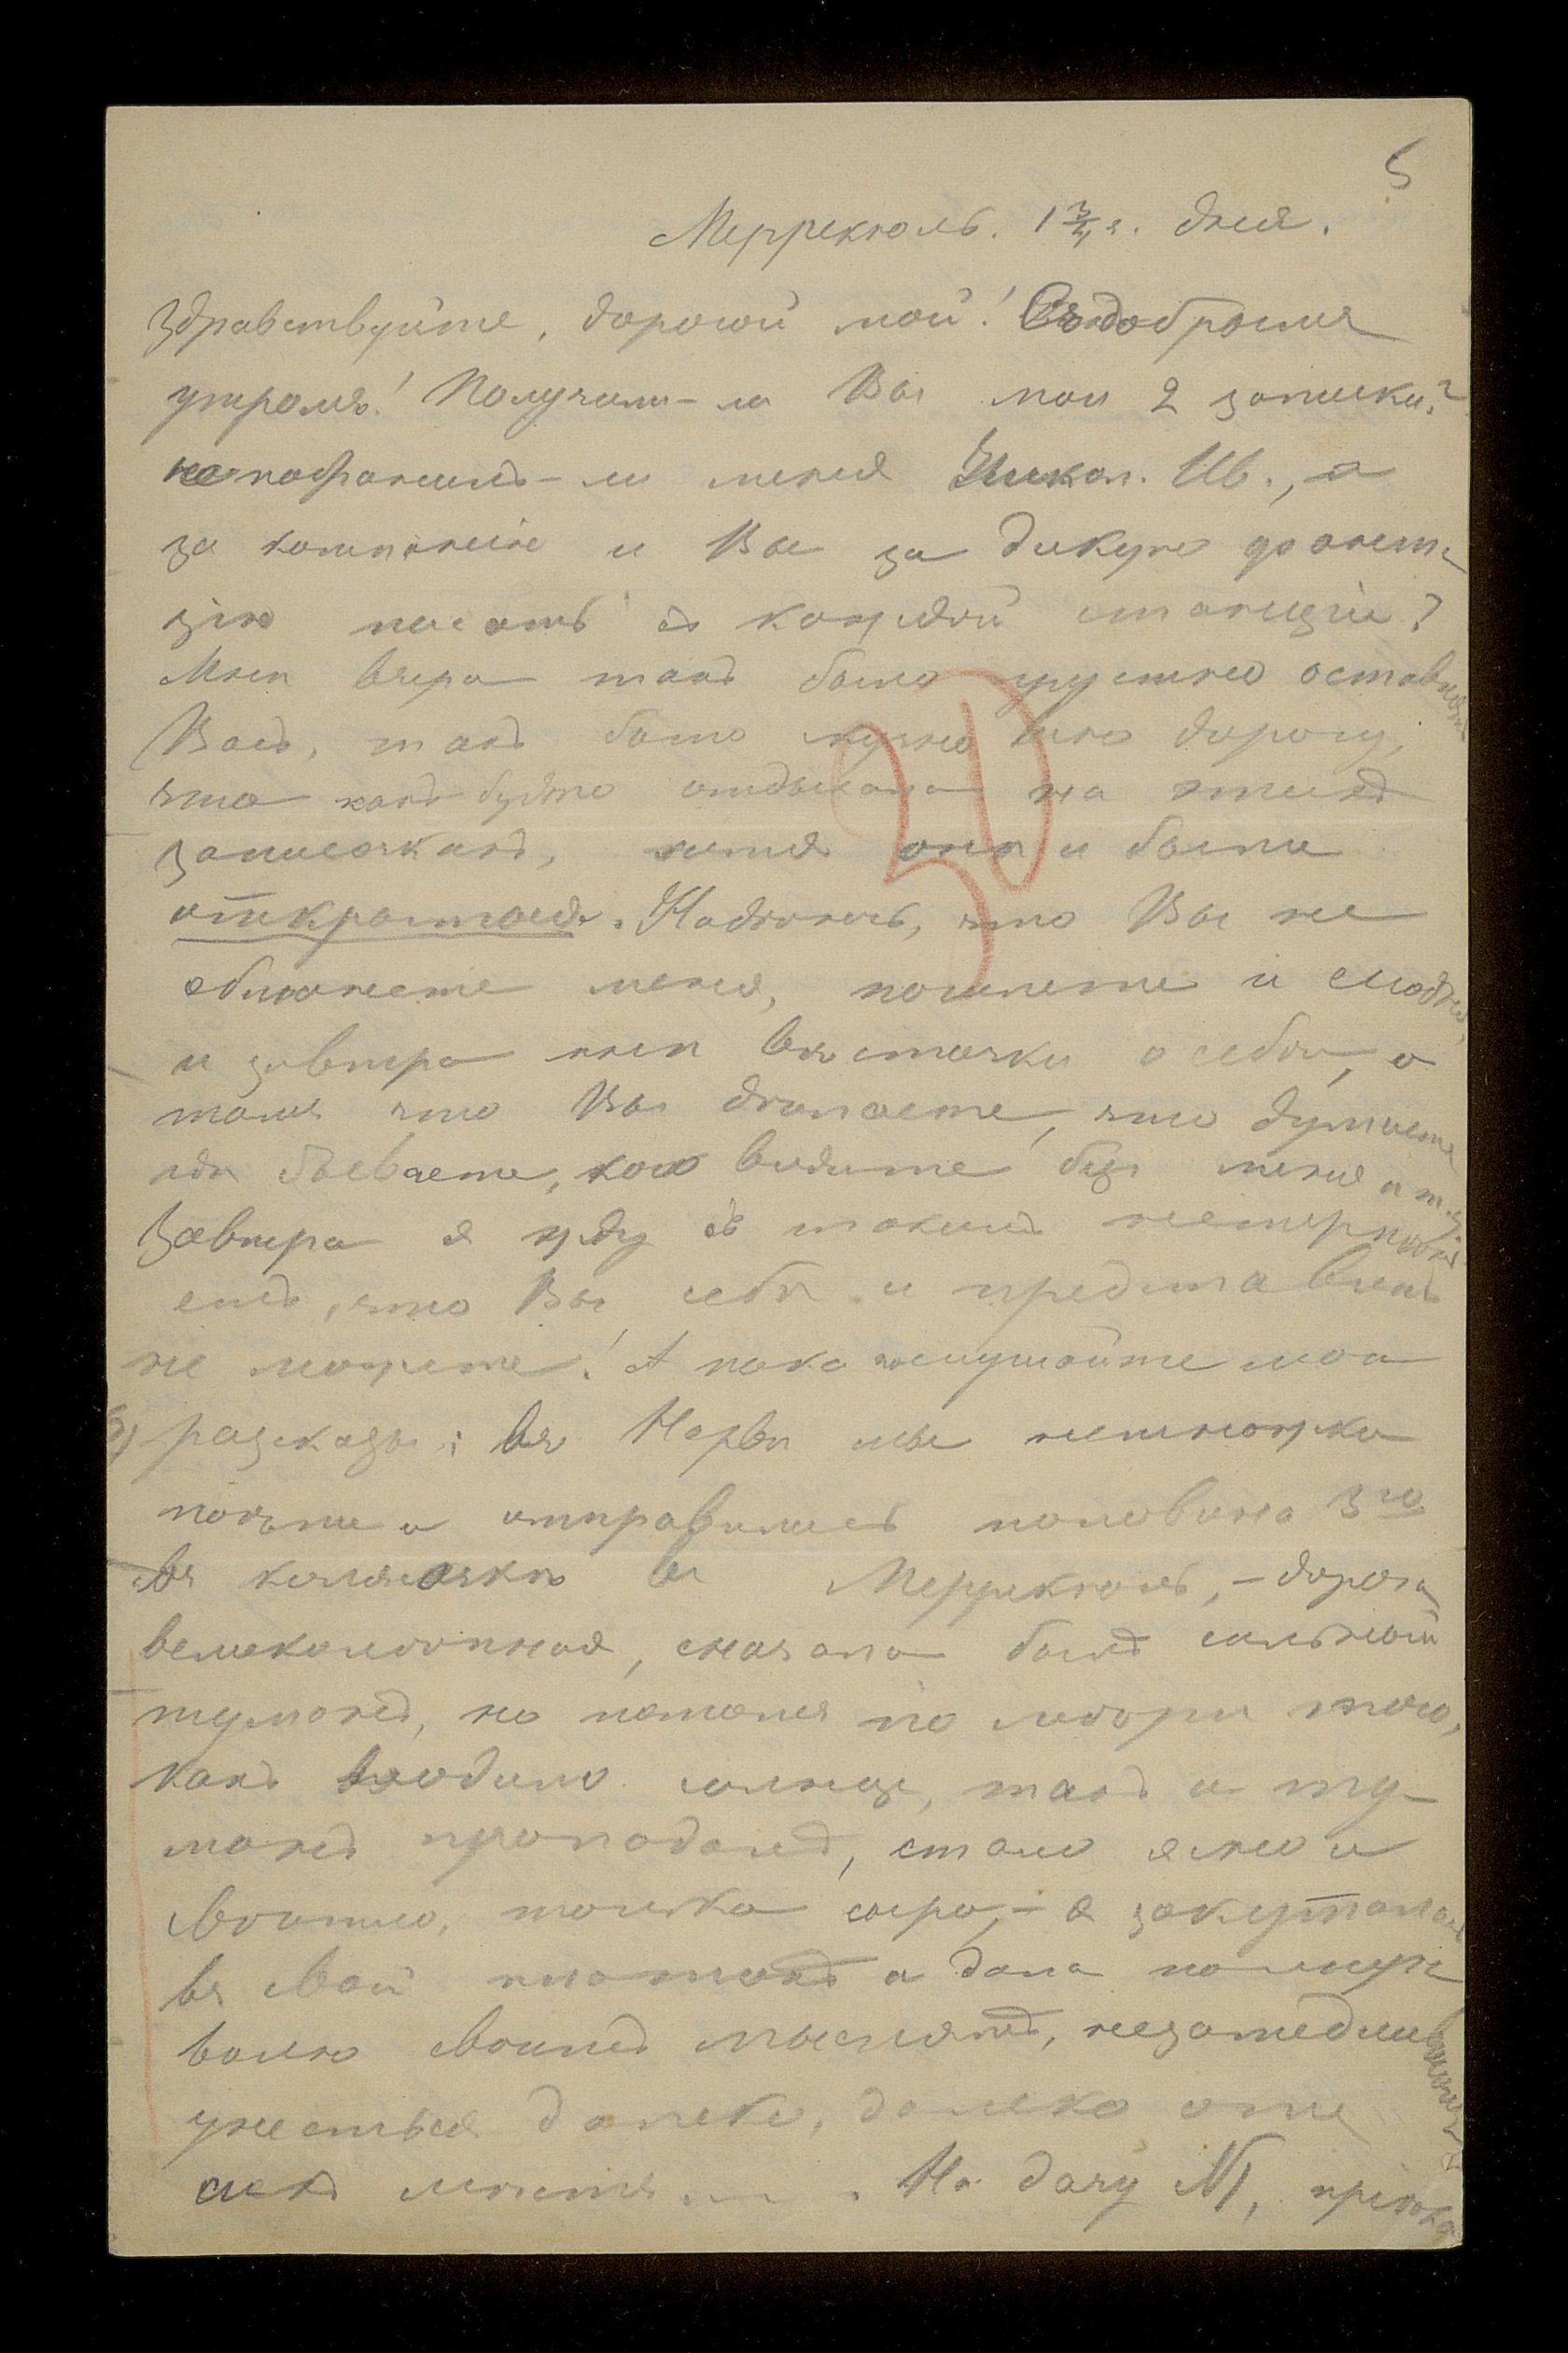 5
Меррекюль. 1 3/4 ч. дня.
Здравствуйте, дорогой мой! Съ добрымъ
утромъ! Получили-ли Вы мои 2 записки?
не побранилъ-ли меня Никол. Ив., а
за компанію и Вы за дикую фанта-
зію писать съ каждой станціи?
Мнѣ вчера такъ было грустно оставлять
Васъ, такъ было скучно всю дорогу,
что какъ будто отдыхала на этихъ
записочкахъ, хотя онѣ и были
открытыя. Надѣюсь, что Вы не
обманете меня, пошлете и сегодня,
и завтра мнѣ вѣсточки о себѣ, о
томъ что Вы дѣлаете, что думаете
гдѣ бываете, кого видите безъ меня и т.д.
Завтра я жду съ такимъ нетерпѣні-
емъ, что Вы себѣ и представить
не можете! А пока послушайте мои
разсказы: въ Нарвѣ мы немножко
поѣли и отправились половина 3го
въ коляскѣ въ Меррекюль, - дорога
великолѣпная, сначала былъ сильный
туманъ, но потомъ по мѣрѣ того,
какъ всходило солнце, такъ и ту-
манъ пропадалъ, стало ясно и
свѣтло, только сыро, - я закуталась
въ свой платокъ и дала полную
волю своимъ мыслямъ, незамедлившимъ
унесться далеко, далеко отъ
сихъ мѣстъ..... На дачу М. пріѣха